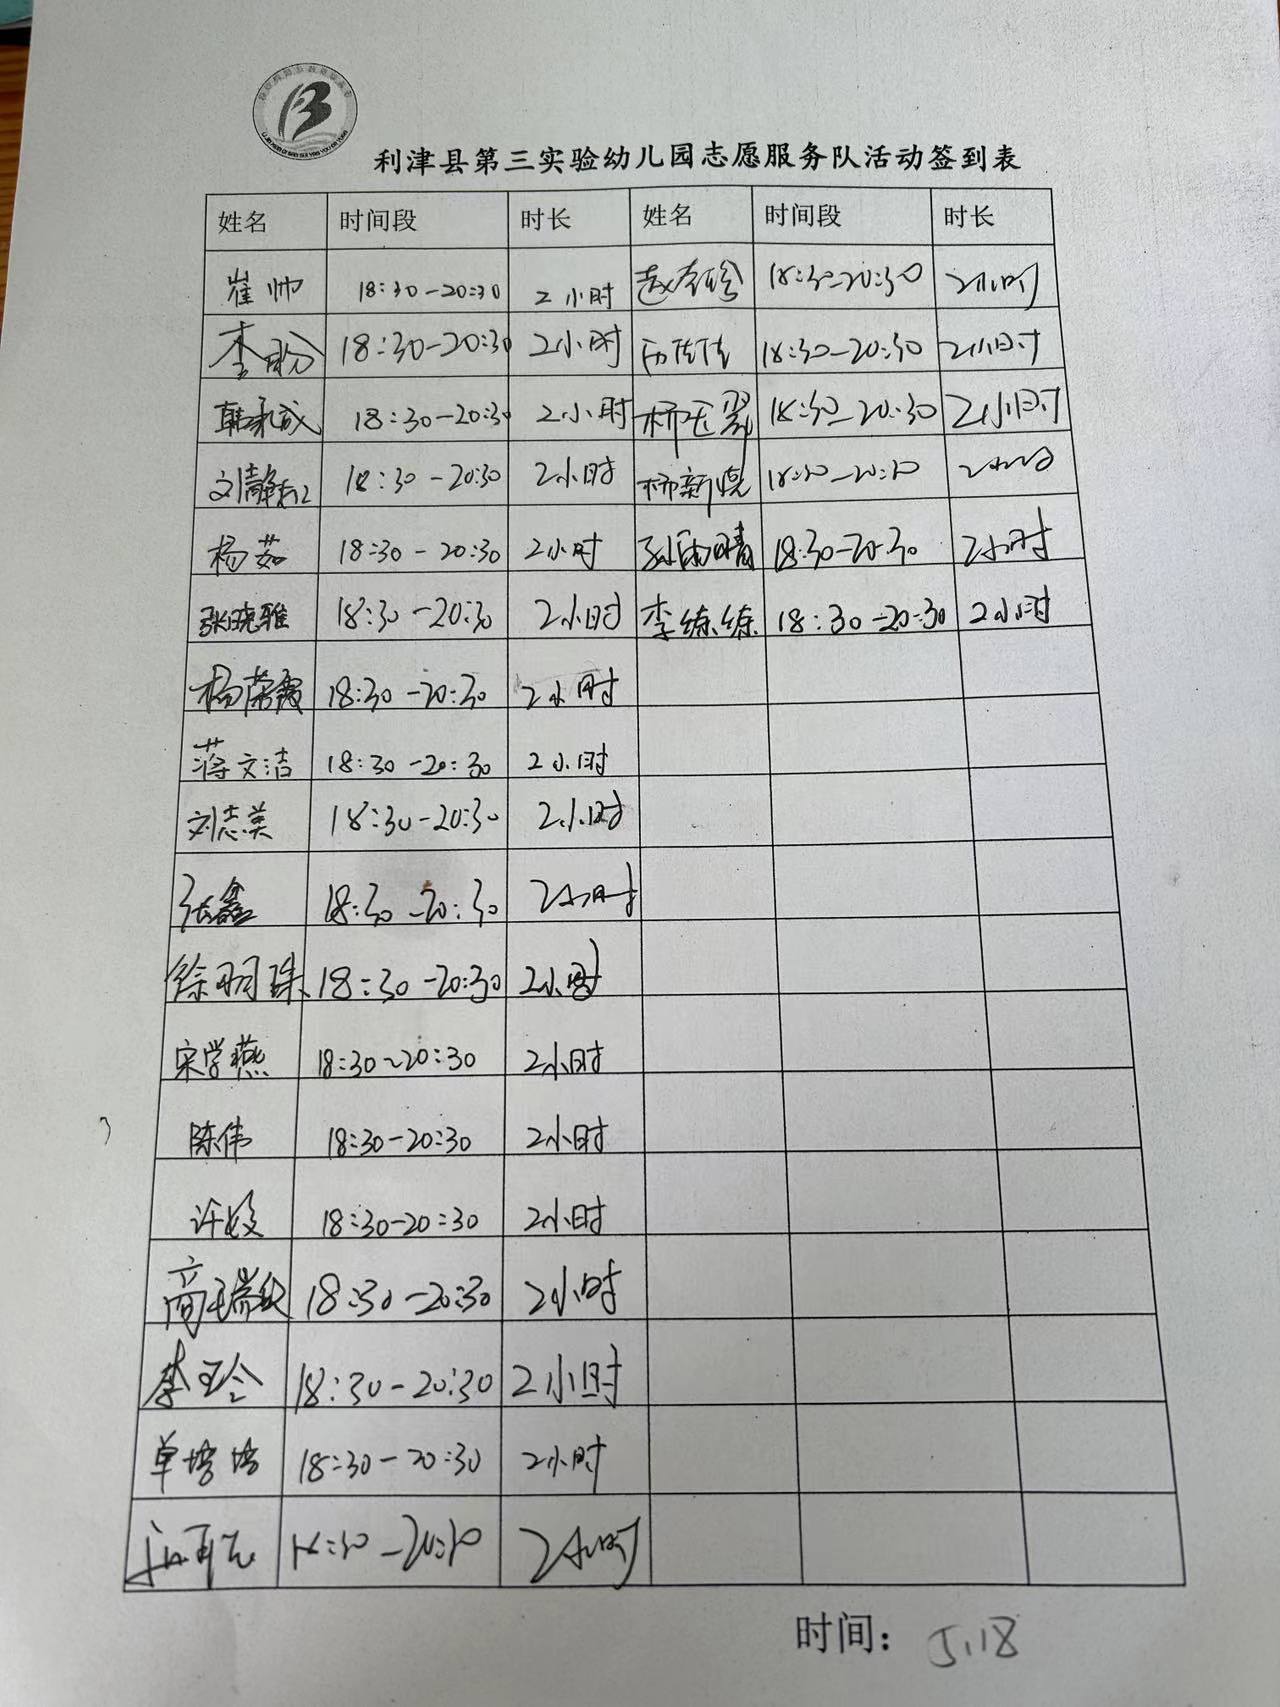 利津县第三实验幼儿园志愿服务队活动签到表
姓名 时间段 时长 姓名 时间段 时长
崔帅 18:30-20:30 2小时 18:30-20:30 2小时
李盼 18:30-20:30 2小时 18:30-20:30 2小时
韩承成 18:30-20:30 2小时 杨玉翠 18:30-20:30 2小时
刘静 18:30-20:30 2小时 杨新悦 18:30-20:30 2小时
杨茹 18:30-20:30 2小时 孙雨晴 18:30-20:30 2小时
张晓雅 18:30-20:30 2小时 李练练 18:30-20:30 2小时
杨荣霞 18:30-20:30 2小时
蒋文洁 18:30-20:30 2小时
刘志美 18:30-20:30 2小时
张鑫 18:30-20:30 2小时
徐明珠 18:30-20:30 2小时
宋学燕 18:30~20:30 2小时
陈伟 18:30-20:30 2小时
许姣 18:30-20:30 2小时
高瑞 18:30-20:30 2小时
李玲 18:30-20:30 2小时
单培培 18:30-20:30 2小时
18:30-20:30 2小时
时间: 5.18